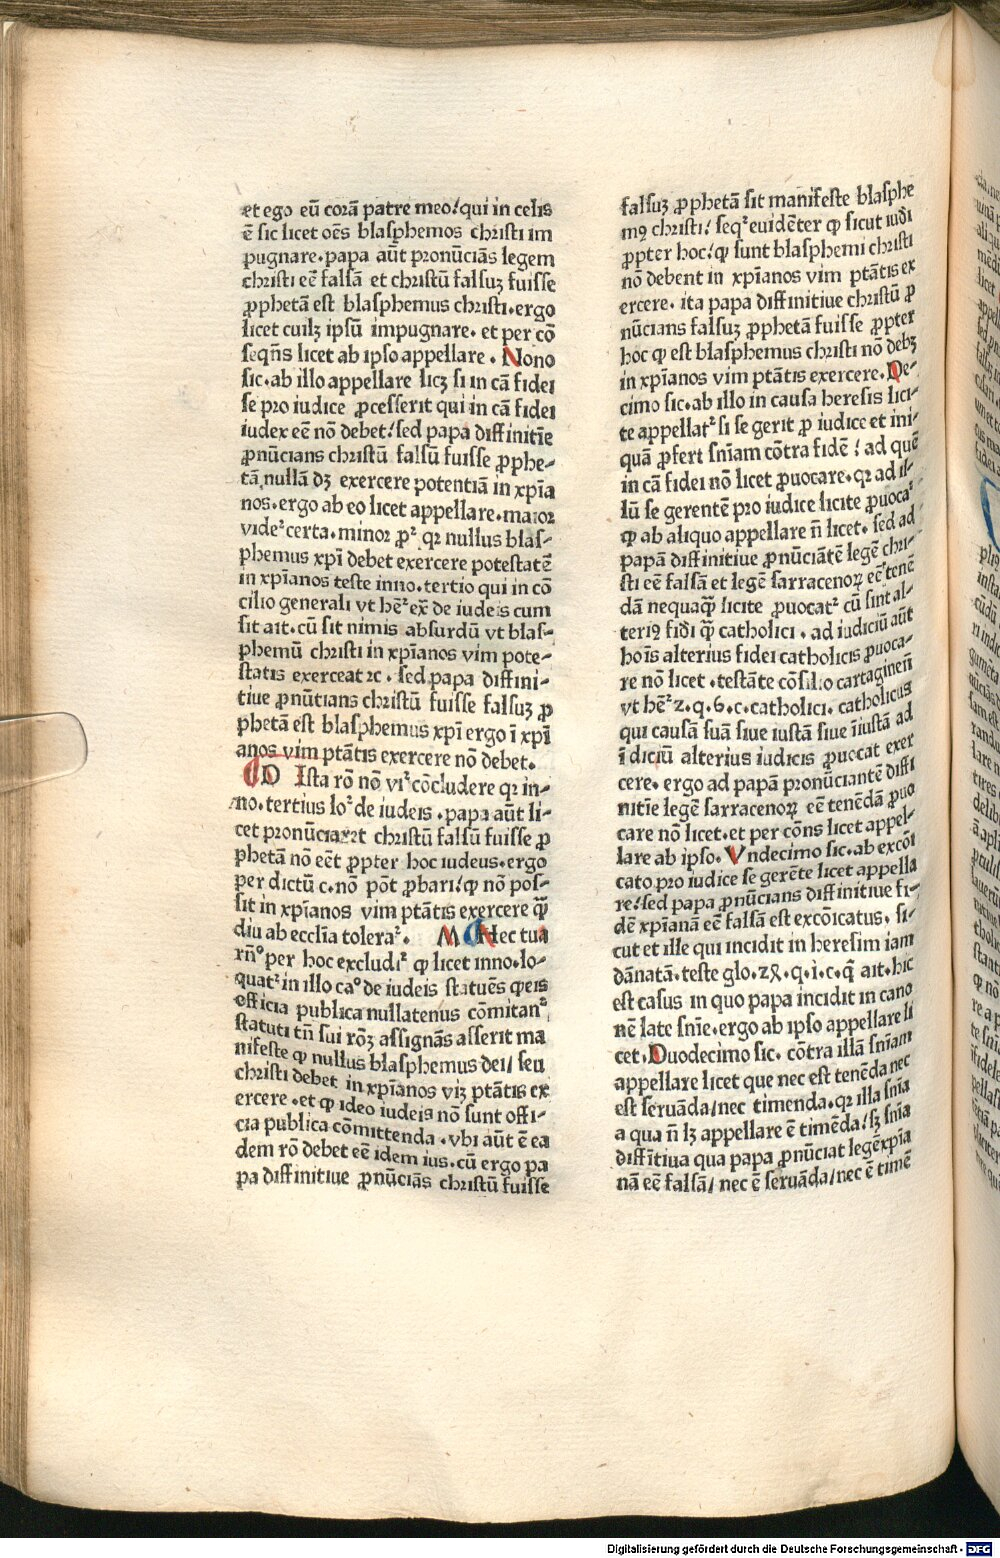 et ego eū corā patre meo! qui in celis
ē sic licet oēs blasphemos christi im
pugnare. papa aūt pronūciās legem
christi eē falsā et christū falsuȝ fuisse
ꝓphetā est blasphemus christi. ergo
licet cuilȝ ipsū impugnare. et per cō
seqñs licet ab ipso appellare . Nono
sic. ab illo appellare licȝ si in cā fidei
se pro iudice ꝓcesserit qui in cā fidei
iudex eē nō debet! sed papa diffinitīe
ꝓnūcians christū falsū fuisse ꝓphe⸗
tā nullā dȝ exercere potentiā in xpīa
nos. ergo ab eo licet appellare. maior
videꝉ certa. minor pꝫ. qr nullus blas⸗
phemus xpī debet exercere potestatē
in xpīanos teste inno. tertio qui in cō
cilio generali vt hēꝉ ex̄ de iudeis cum
sit ait. cū sit nimis absurdū vt blas⸗
phemū christi in xpīanos vim pote⸗
statis exerceat ⁊c . sed papa diffini⸗
tiue ꝓnūtians christū fuisse falsuȝ ꝓ
phetā est blasphemus xpī ergo ī xpī
anos vim ptātis exercere nō debet.
D Ista rō nō vꝉ cōcludere qr in⸗
no. tertius loꝉ de iudeis . papa aūt li⸗
cet pronūciaret christū falsū fuisse ꝓ
phetā nō eēt ꝓpter hoc iudeus. ergo
per dictū c. nō pōt ꝓbari! ꝙ nō pos⸗
sit in xpīanos vim ptātis exercere ꝙ̄
diu ab ecclīa toleraꝉ. M Hec tua
rñº per hoc excludiꝉ ꝙ licet inno. lo⸗
quatꝉ in illo caº de iudeis statuēs ꝙ eis
officia publica nullatenus cōmitanꝉ
statuti tñ sui rōȝ assignās asserit ma
nifeste ꝙ nullus blasphemus dei/ seu
christi debet in xpīanos viȝ ptātis ex
ercere . et ꝙ ideo iudeis nō sunt offi⸗
cia publica cōmittenda . vbi aūt ē ea
dem rō debet eē idem ius. cū ergo pa
pa diffinitiue ꝓnūciās christū fuisse
falsuȝ ꝓphetā sit manifeste blasphe
mꝰ christi! seqꝉ euidēter ꝙ sicut iudi
ꝓpter hoc! ꝙ sunt blasphemi christi
nō debent in xpīanos vim ptātis ex
ercere. ita papa diffinitiue christū ꝓ
nūcians falsuȝ ꝓphetā fuisse ꝓpter
hoc ꝙ est blasphemus christi nō debȝ
in xpīanos vim ptātis exercere. De⸗
cimo sic. ab illo in causa heresis lici⸗
te appellatꝉ si se gerit ꝓ iudice et ini⸗
quā ꝓfert sñīam cōtra fidē ! ad quē
in cā fidei nō licet ꝓuocare. qr ad il⸗
lū se gerentē pro iudice licite ꝓuocaꝉ
ꝙ ab aliquo appellare ñ licet. sed ad
papā diffinitiue ꝓnūciātē legē chri⸗
sti eē falsā et legē sarracenoꝝ eē tenē
dā nequaꝙ̄ licite ꝓuocatꝉ cū sint al⸗
teriꝰ fidi ꝙ̄ catholici . ad iudiciū aūt
hoīs alterius fidei catholicis ꝓuoca⸗
re nō licet . testāte cōsilio cartaginēñ
vt hēꝉ 2. q. 6. c. catholici. catholicus
qui causā suā siue iustā siue īiustā ad
ī diciū alterius iudicis ꝓuocat exer
cere. ergo ad papā pronūciantē diffi
nitīe legē sarracenoꝝ eē tenēdā ꝓuo
care nō licet. et per cōns licet appel⸗
lare ab ipso. Vndecimo sic. ab excōi
cato pro iudice se gerēte licet appella
re! sed papa ꝓnūcians diffinitiue fi⸗
dē xpīanā eē falsā est excōicatus. si⸗
cut et ille qui incidit in heresim iam
dānatā. teste glo. 24. q. i. c. q̄ ait. hic
est casus in quo papa incidit in cano
nē late snīe. ergo ab ipso appellare li
cet. Duodecimo sic. cōtra illā snīam
appellare licet que nec est tenēda nec
est seruāda/ nec timenda. qr illa snīa
a qua ñ lȝ appellare ē timēda! sȝ snīa
diffītiua qua papa ꝓnūciat legē xpīa
nā eē falsā/ nec ē seruāda/ nec ē timē
Digitalisierung gefördert durch die Deutsche Forschungsgemeinschaft - DFG